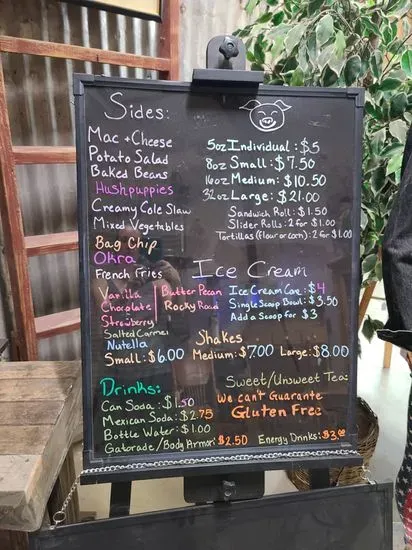 Sides:
Mac + Cheese
Potato Salad
Baked Beans
Hushpuppies
Creamy Cole Slaw
Mixed Vegetables
Bag Chip
Okra
French Fries
5oz Individual: $5
8oz Small: $7.50
16oz Medium: $10.50
32oz Large: $21.00
Sandwich Roll: $1.50
Slider Rolls: 2 for $1.00
Tortillas (flour or corn): 2 for $1.00
Ice Cream
Vanilla
Chocolate
Strawberry
Salted Carmel
Nutella
Butter Pecan
Rocky Road
Ice Cream Cone: $4
Single Scoop Bowl: $3.50
Add a Scoop for $3
Shakes
Small: $6.00 Medium: $7.00 Large: $8.00
Drinks:
Can Soda: $1.50
Mexican Soda: $2.75
Bottle Water: $1.00
Gatorade/Body Armor: $2.50 Energy Drinks: $3.00
Sweet/Unsweet Tea:
We can't Guarante
Gluten Free